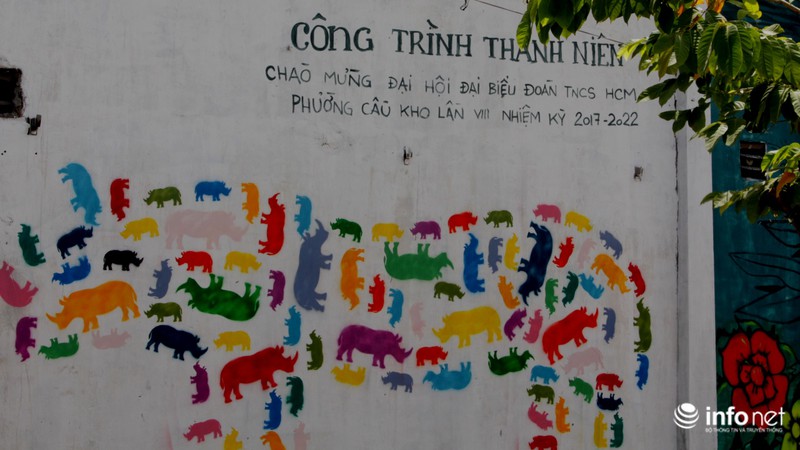 CÔNG TRÌNH THANH NIÊN
CHÀO MỪNG ĐẠI HỘI ĐẠI BIỂU ĐOÀN TNCS HCM
PHƯỜNG CẦU KHO LẦN VIII NHIỆM KỲ 2017-2022
infonet
BỘ THÔNG TIN VÀ TRUYỀN THÔNG